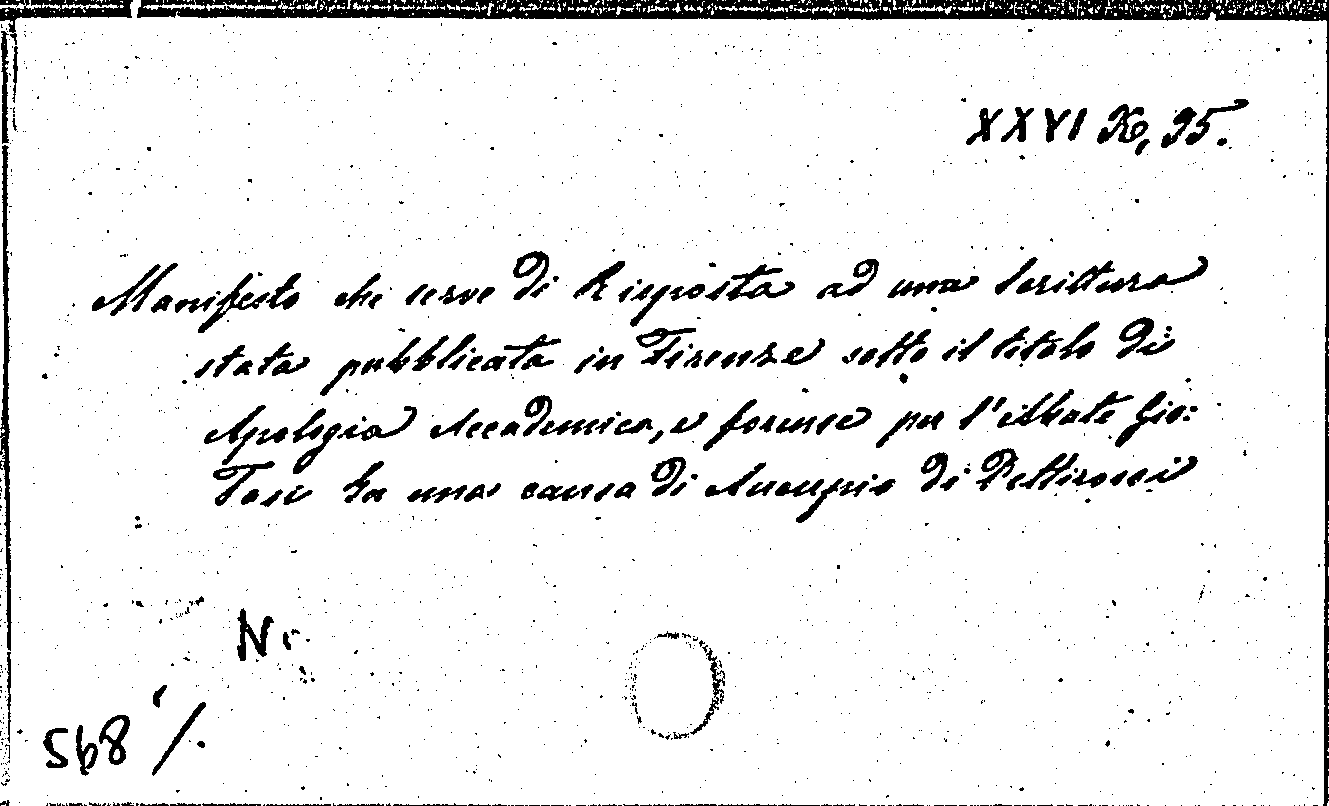 XXVI Ke, 95.
Manifesto che serve di Risposta ad una Scrittura
stata pubblicata in Firenze sotto il titolo di
Apologia Accademica, e forense per l'Abate Gio:
Tosi in una causa di Aucupio di Pettirossi
N
568 /.